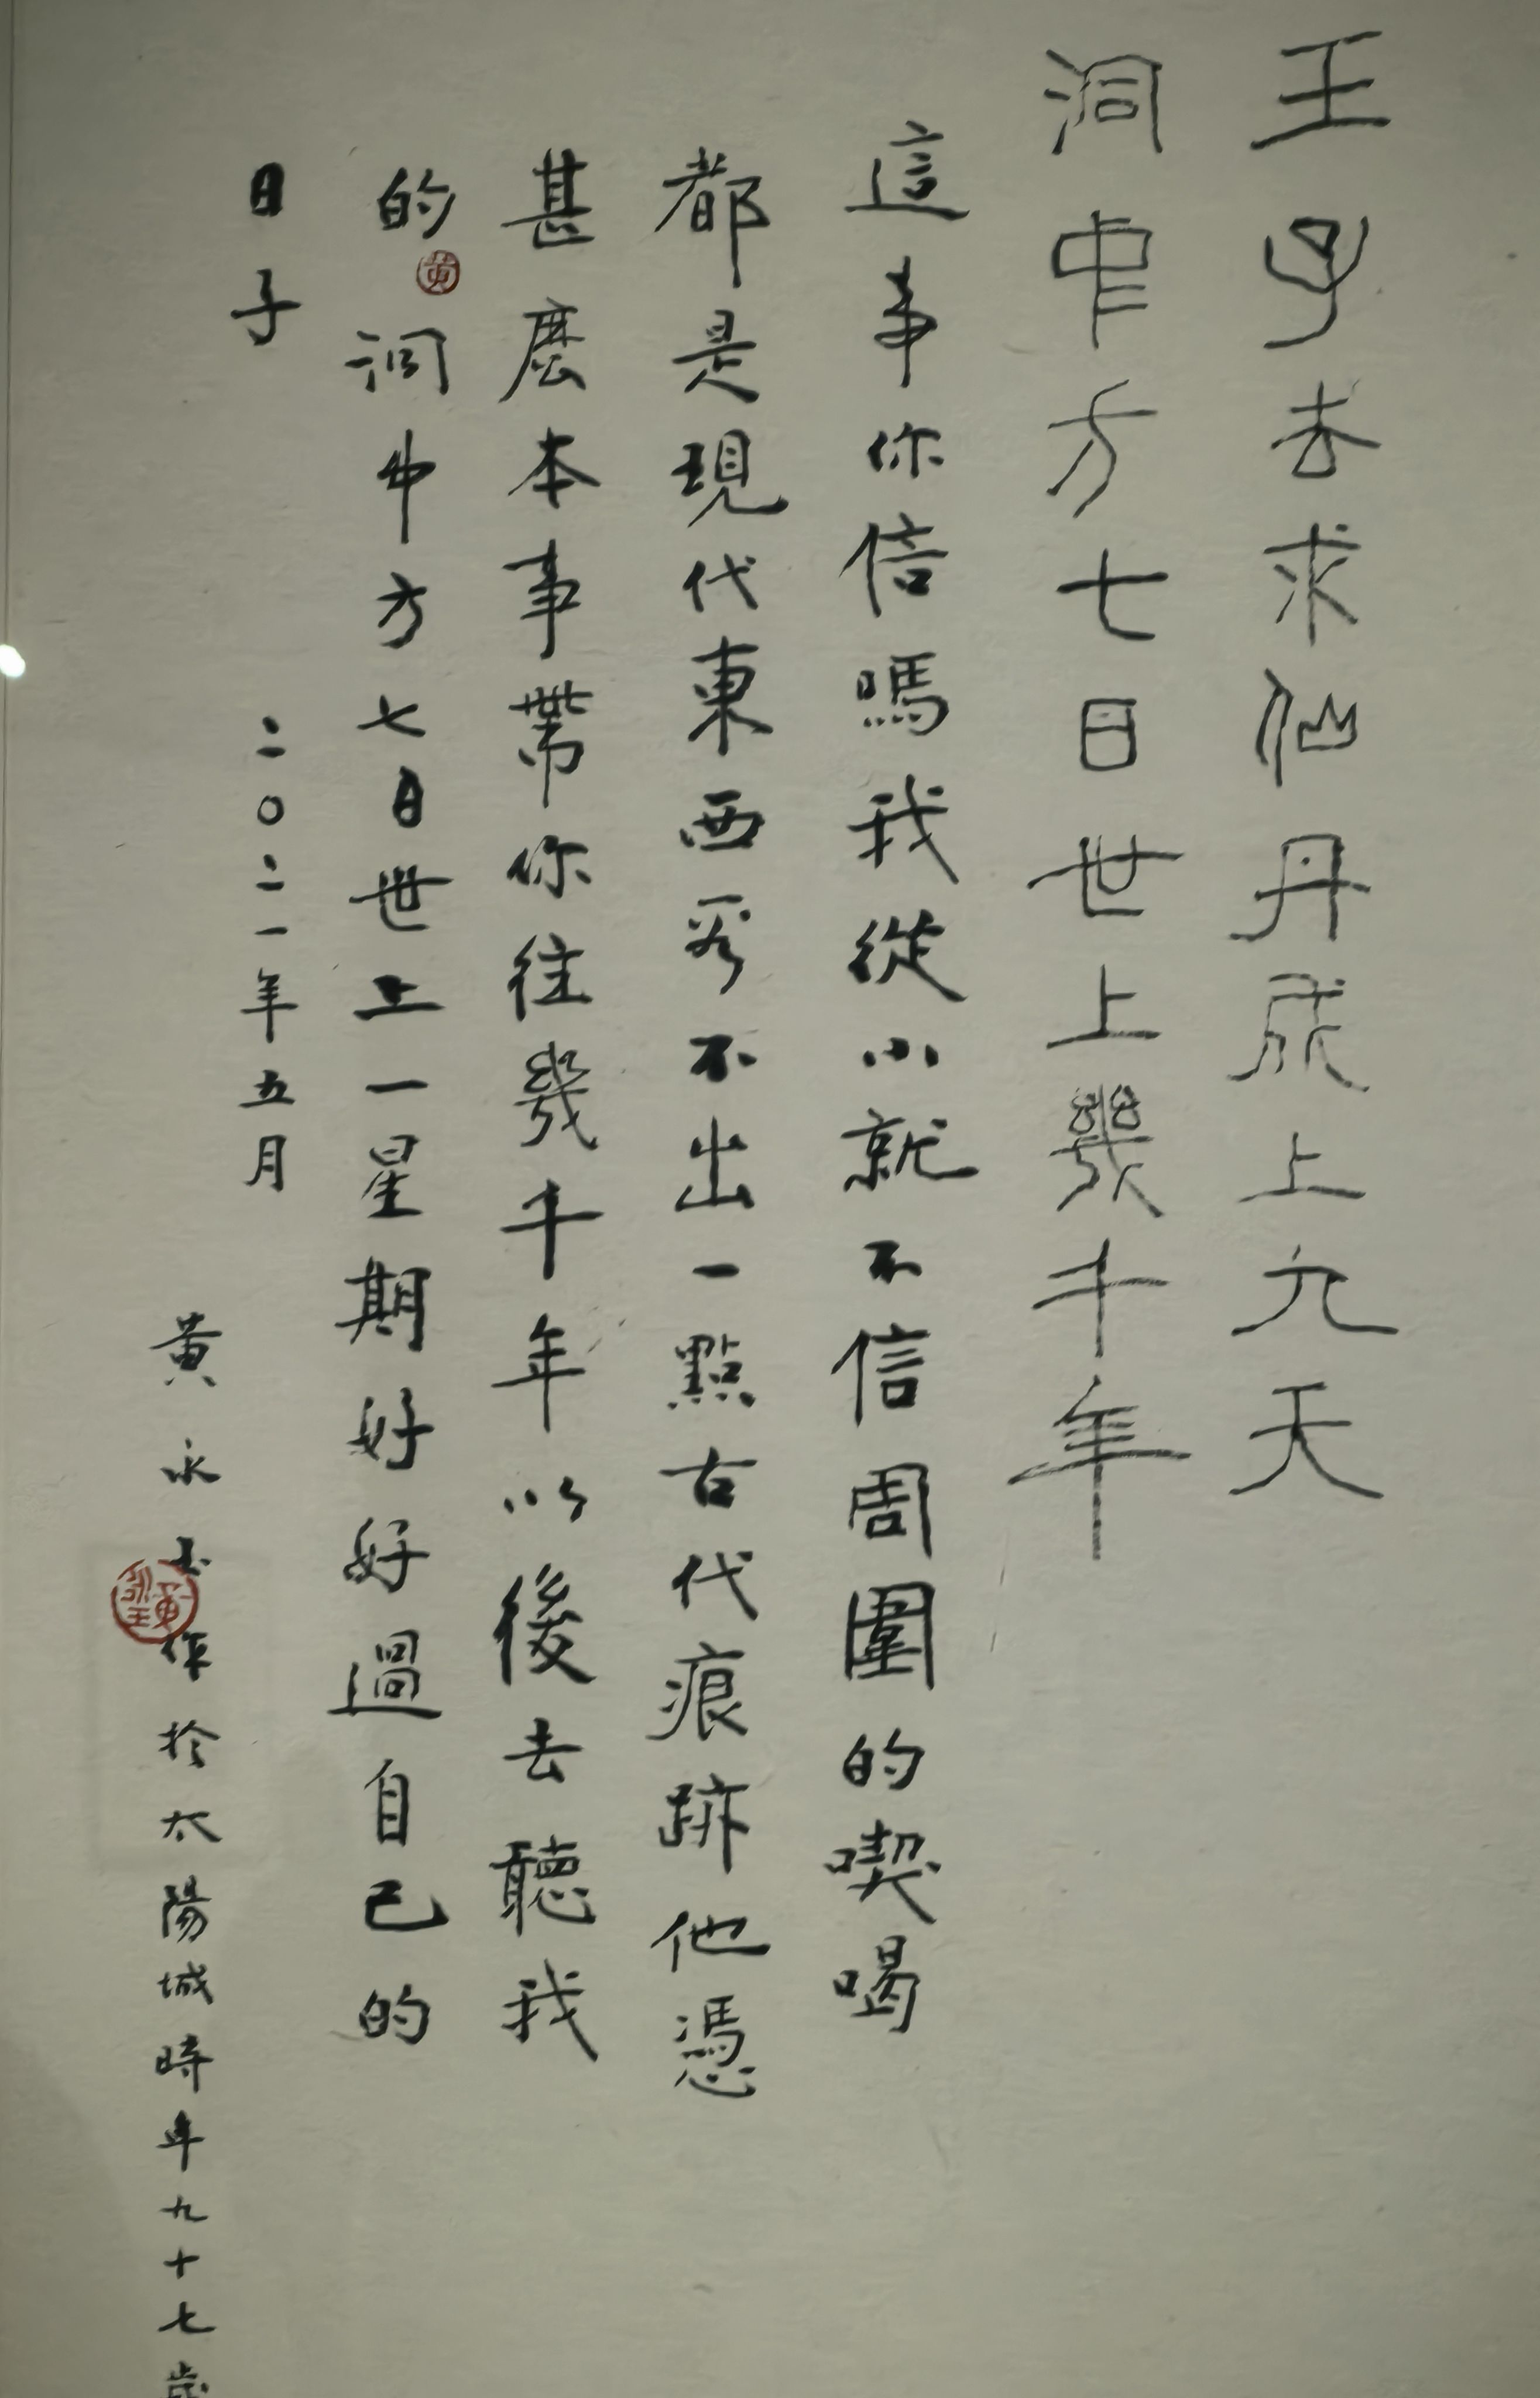 王子去求仙丹成上九天
洞中方七日世上幾千年
這事你信嗎我從小就不信周圍的喫喝
都是現代東西看不出一點古代痕跡他憑
甚麼本事帶你往幾千年以後去聽我
的洞中方七日世上一星期好好過自己的
日子
二〇二一年五月
黃永玉作於太陽城時年九十七歲
黃
黃永玉